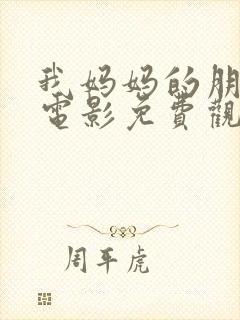 我妈妈的朋
電影免費觀
周平虎